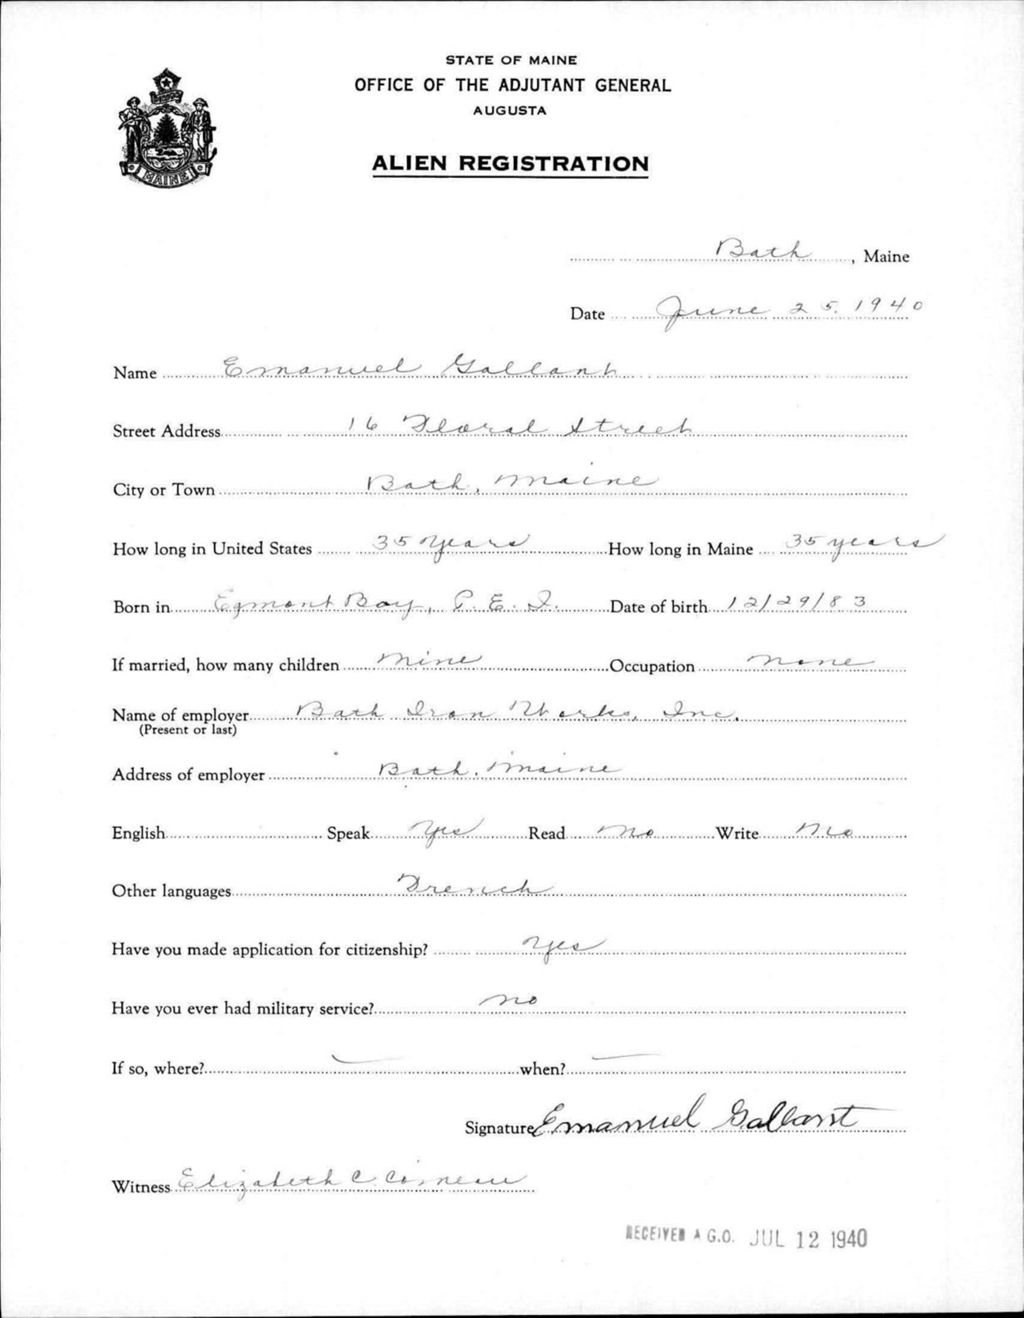 STATE OF MAINE
OFFICE OF THE ADJUTANT GENERAL
AUGUSTA
ALIEN REGISTRATION
MAINE
Bath, Maine
Date June 25, 1940
Name Emanuel Gallant
Street Address 16 Floral Street
City or Town Bath, Maine
How long in United States 35 years How long in Maine 35 years
Born in Egmont Bay, P. E. I. Date of birth 12/29/83
If married, how many children Nine Occupation None
Name of employer Bath Iron Works, Inc.
(Present or last)
Address of employer Bath, Maine
English Speak Yes Read No Write No
Other languages French
Have you made application for citizenship? Yes
Have you ever had military service? No
If so, where? — when? —
Signature Emanuel Gallant
Witness Elizabeth C. Comeau
RECEIVED A.G.O. JUL 12 1940